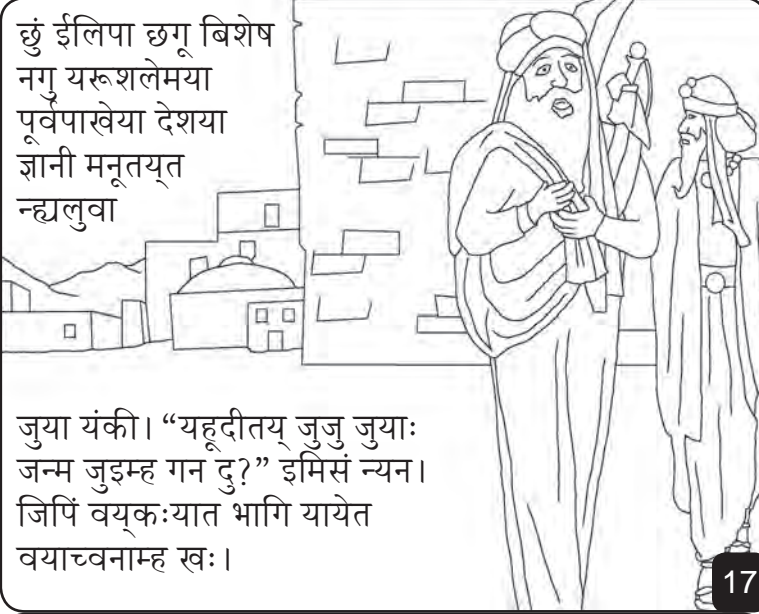 छुं ईलिपा छगू बिशेष
नगु यरूशलेमया
पूर्वपाखेया देशया
ज्ञानी मनूतय्‌त
न्ह्यलुवा
जुया यंकी। “यहूदीतय् जुजु जुयाः
जन्म जुइम्ह गन दु?” इमिसं न्यन।
जिपिं वय्‌कःयात भागि यायेत
वयाच्वनाम्ह खः।
17